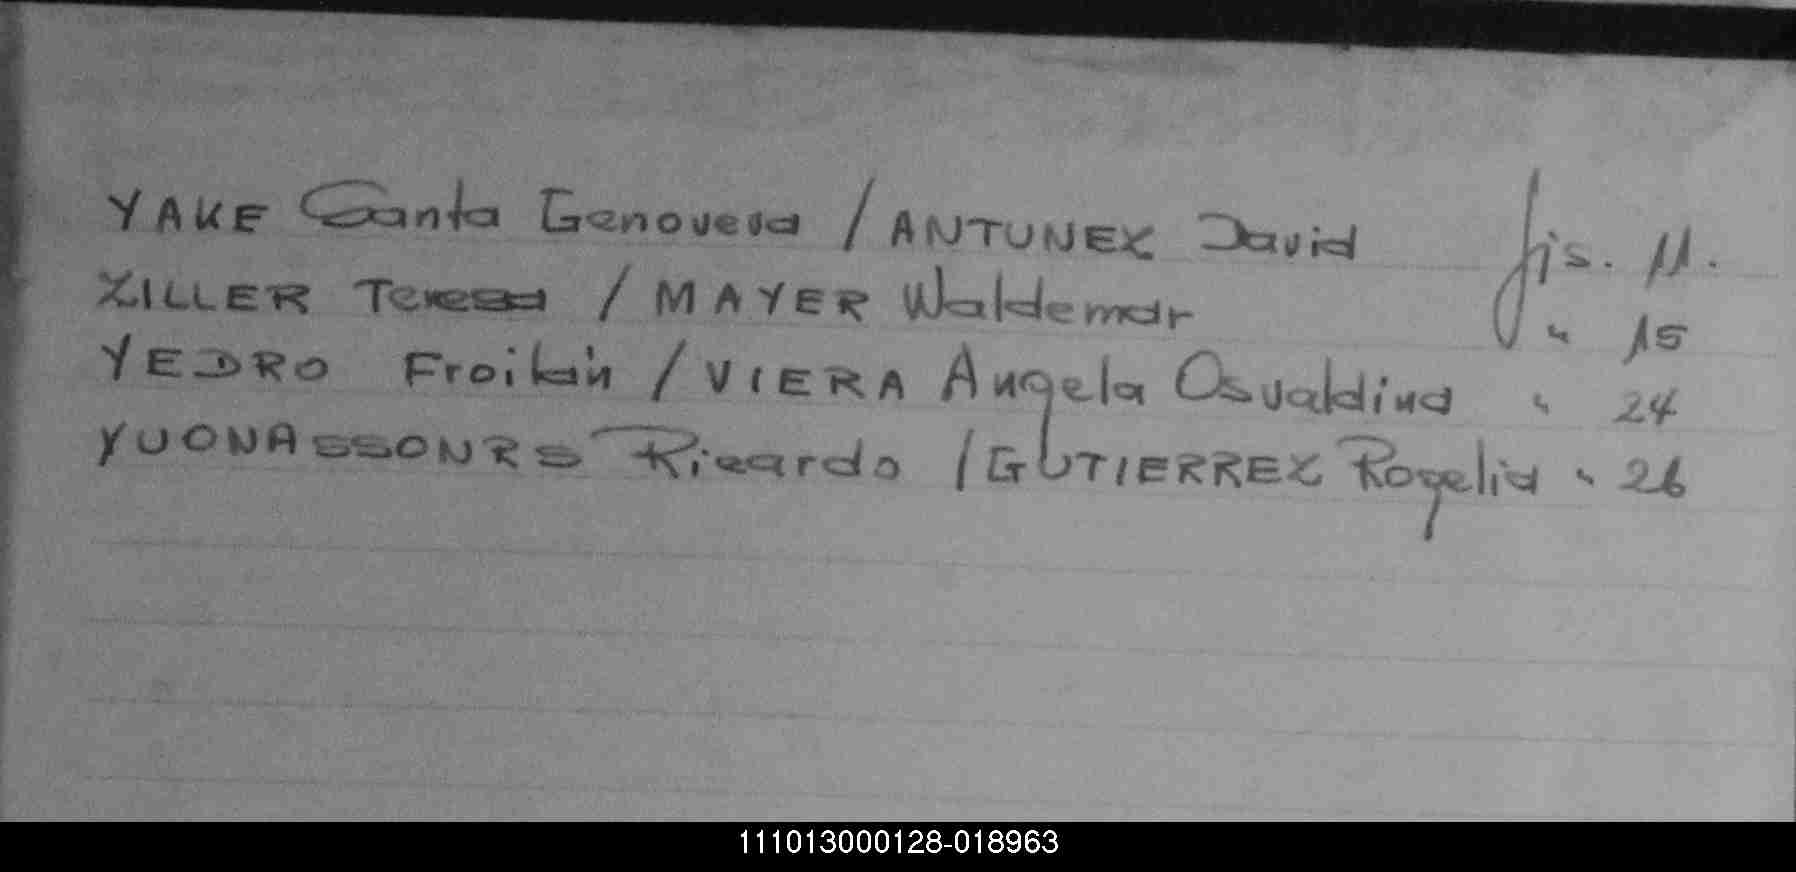 YAKE Santa Genoveva / ANTUNEZ David fjs. 11.
ZILLER Teresa / MAYER Waldemar " 15
YEDRO Froilán / VIERA Angela Osvaldina " 24
YUONASSONRS Ricardo / GUTIERREZ Rogelia " 26
111013000128-018963